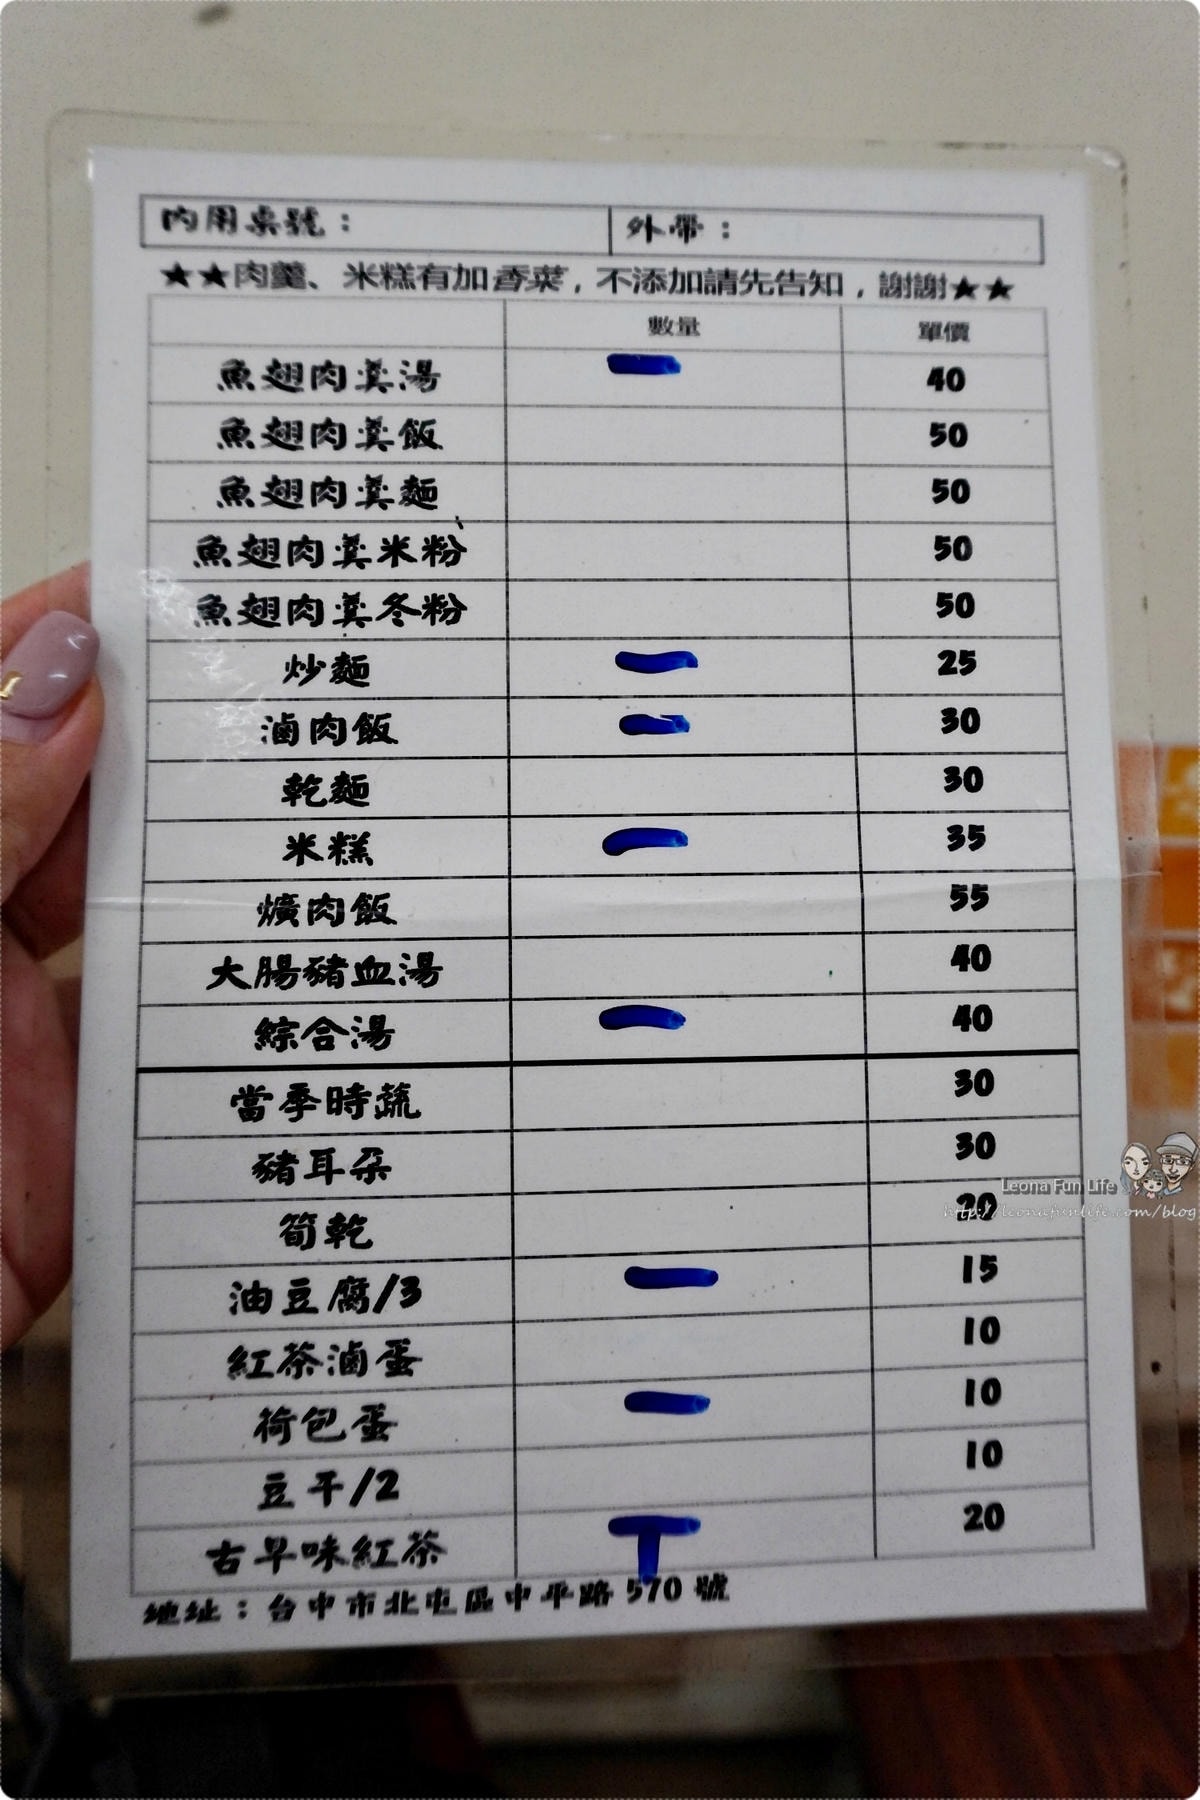 內用桌號： 外帶：
★★肉羹、米糕有加香菜，不添加請先告知，謝謝★★
數量 單價
魚翅肉羹湯 40
魚翅肉羹飯 50
魚翅肉羹麵 50
魚翅肉羹米粉 50
魚翅肉羹冬粉 50
炒麵 25
滷肉飯 30
乾麵 30
米糕 35
爌肉飯 55
大腸豬血湯 40
綜合湯 40
當季時蔬 30
豬耳朵 30
筍乾 20
油豆腐/3 15
紅茶滷蛋 10
荷包蛋 10
豆干/2 10
古早味紅茶 20
地址：台中市北屯區中平路 570 號
Leona Fun Life
http://leonafunlife.com/blog